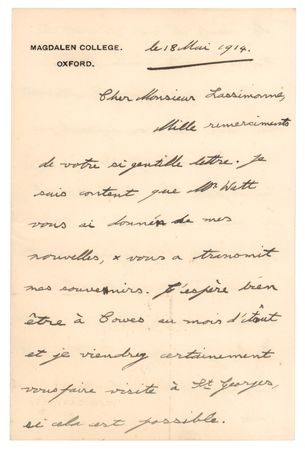 MAGDALEN COLLEGE.
OXFORD.
le 18 Mai 1914.
Cher Monsieur Lassimonne,
Mille remerciments
de votre si gentille lettre. Je
suis content que Mr. Watt
vous ai donné de mes
nouvelles, & vous a transmit
mes souvenirs. J'espère bien
être à Cowes au mois d'
et je viendrez certainement
vous faire visite à St. Georges,
si cela est possible.